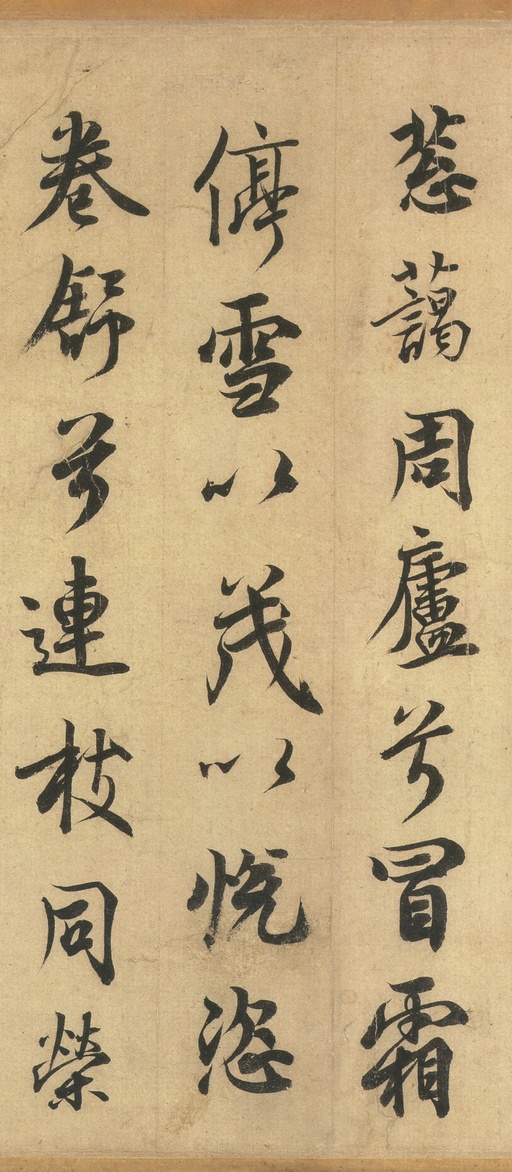 蔥藹周廬兮冒霜
停雪以茂以悅恣
卷舒兮連枝同榮